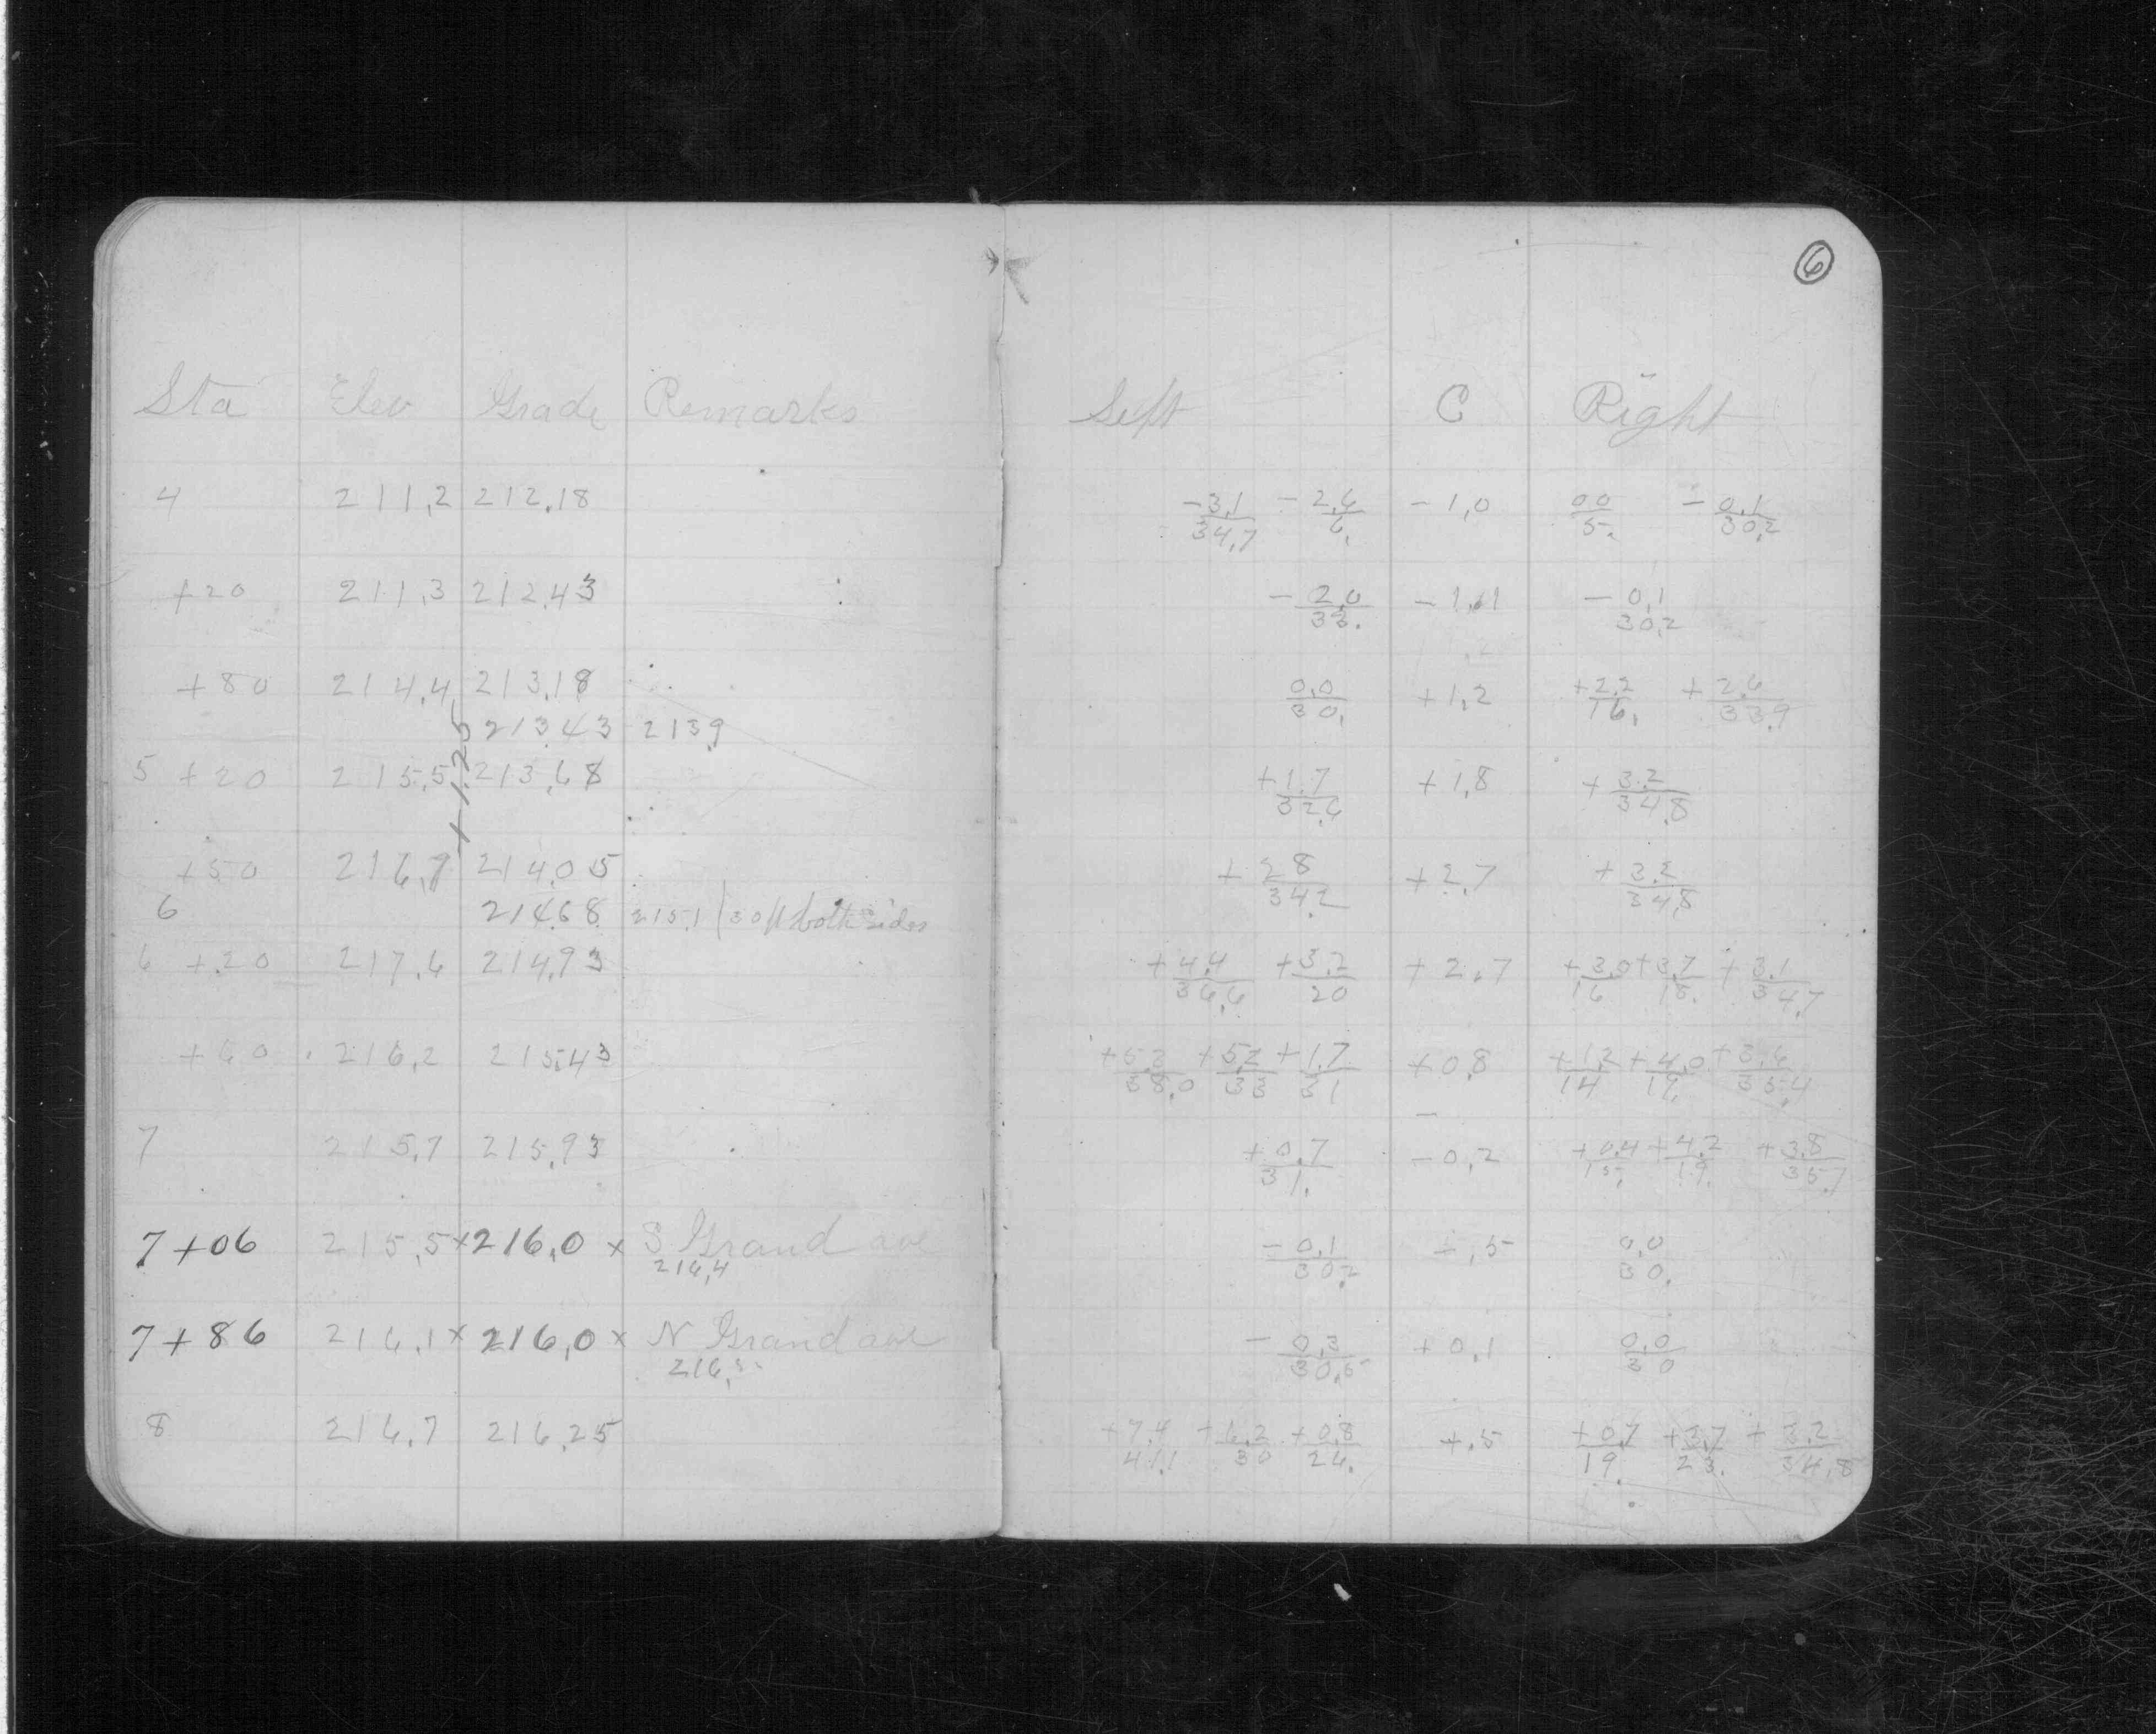 6
Sta Elev Grade Remarks Left C Right
4 211.2 212.18 -3.1/34.7 -2.6/6. -1.0 0.0/5. -0.1/30.2
+20 211.3 212.43 -2.0/33. -1.1 -0.1/30.2
+80 214.4 213.18 0.0/30. +1.2 +2.2/16. +2.6/33.9
213.43 213.9
+1.25
5 +20 215.5 213.68 +1.7/32.6 +1.8 +3.2/34.8
+50 216.7 214.05 +2.8/34.2 +2.7 +3.2/34.8
6 214.68 215.1 30ft both sides
6 +20 217.6 214.93 +4.4/36.6 +3.2/20 +2.7 +3.0/16 +3.7/18. +3.1/34.7
+60 216.2 215.43 +5.3/38.0 +5.2/33 +1.7/31 +0.8 +1.2/14 +4.0/17. +3.6/35.4
7 215.7 215.93 +0.7/31. -0.2 +0.4/15. +4.2/19. +3.8/35.7
7+06 215.5 x 216.0 x S Grand ave -0.1/30.2 -.5 0.0/30.
216.4
7+86 216.1 x 216.0 x N Grand ave -0.3/30.5 +0.1 0.0/30
216.5
8 216.7 216.25 +7.4/41.1 +6.2/30 +0.8/26. +.5 +0.7/19. +3.7/23. +3.2/34.8